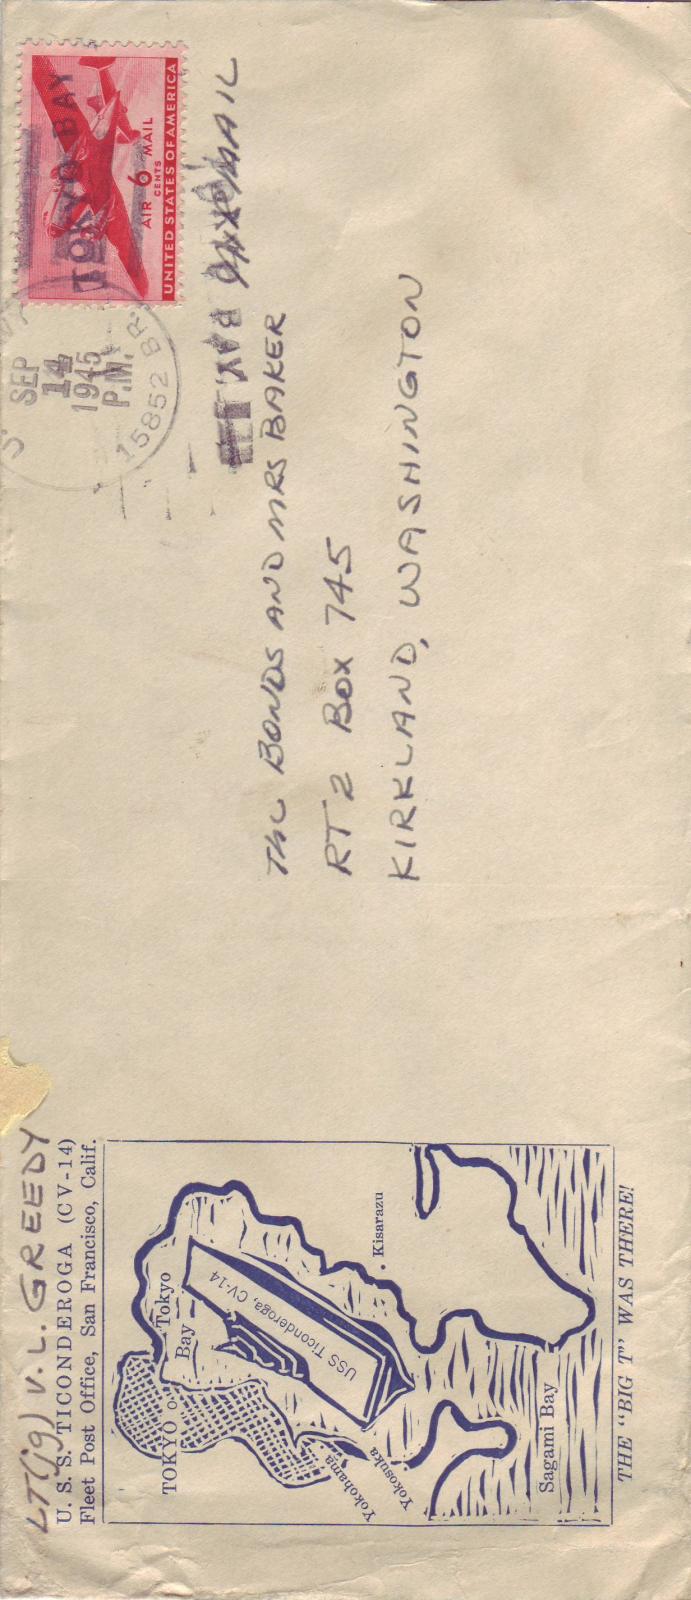 LT(jg) V. L. GREEDY
U. S. S. TICONDEROGA (CV-14)
Fleet Post Office, San Francisco, Calif.
TOKYO
Tokyo
Bay
USS Ticonderoga, CV-14
Kisarazu
Yokohama
Yokosuka
Sagami Bay
THE "BIG T" WAS THERE!
AIR 6 MAIL
CENTS
UNITED STATES OF AMERICA
TOKYO BAY
SEP
14
1945
P.M.
15852 BR.
MAIL
BAY
THE BONDS AND MRS BAKER
RT 2 BOX 745
KIRKLAND, WASHINGTON